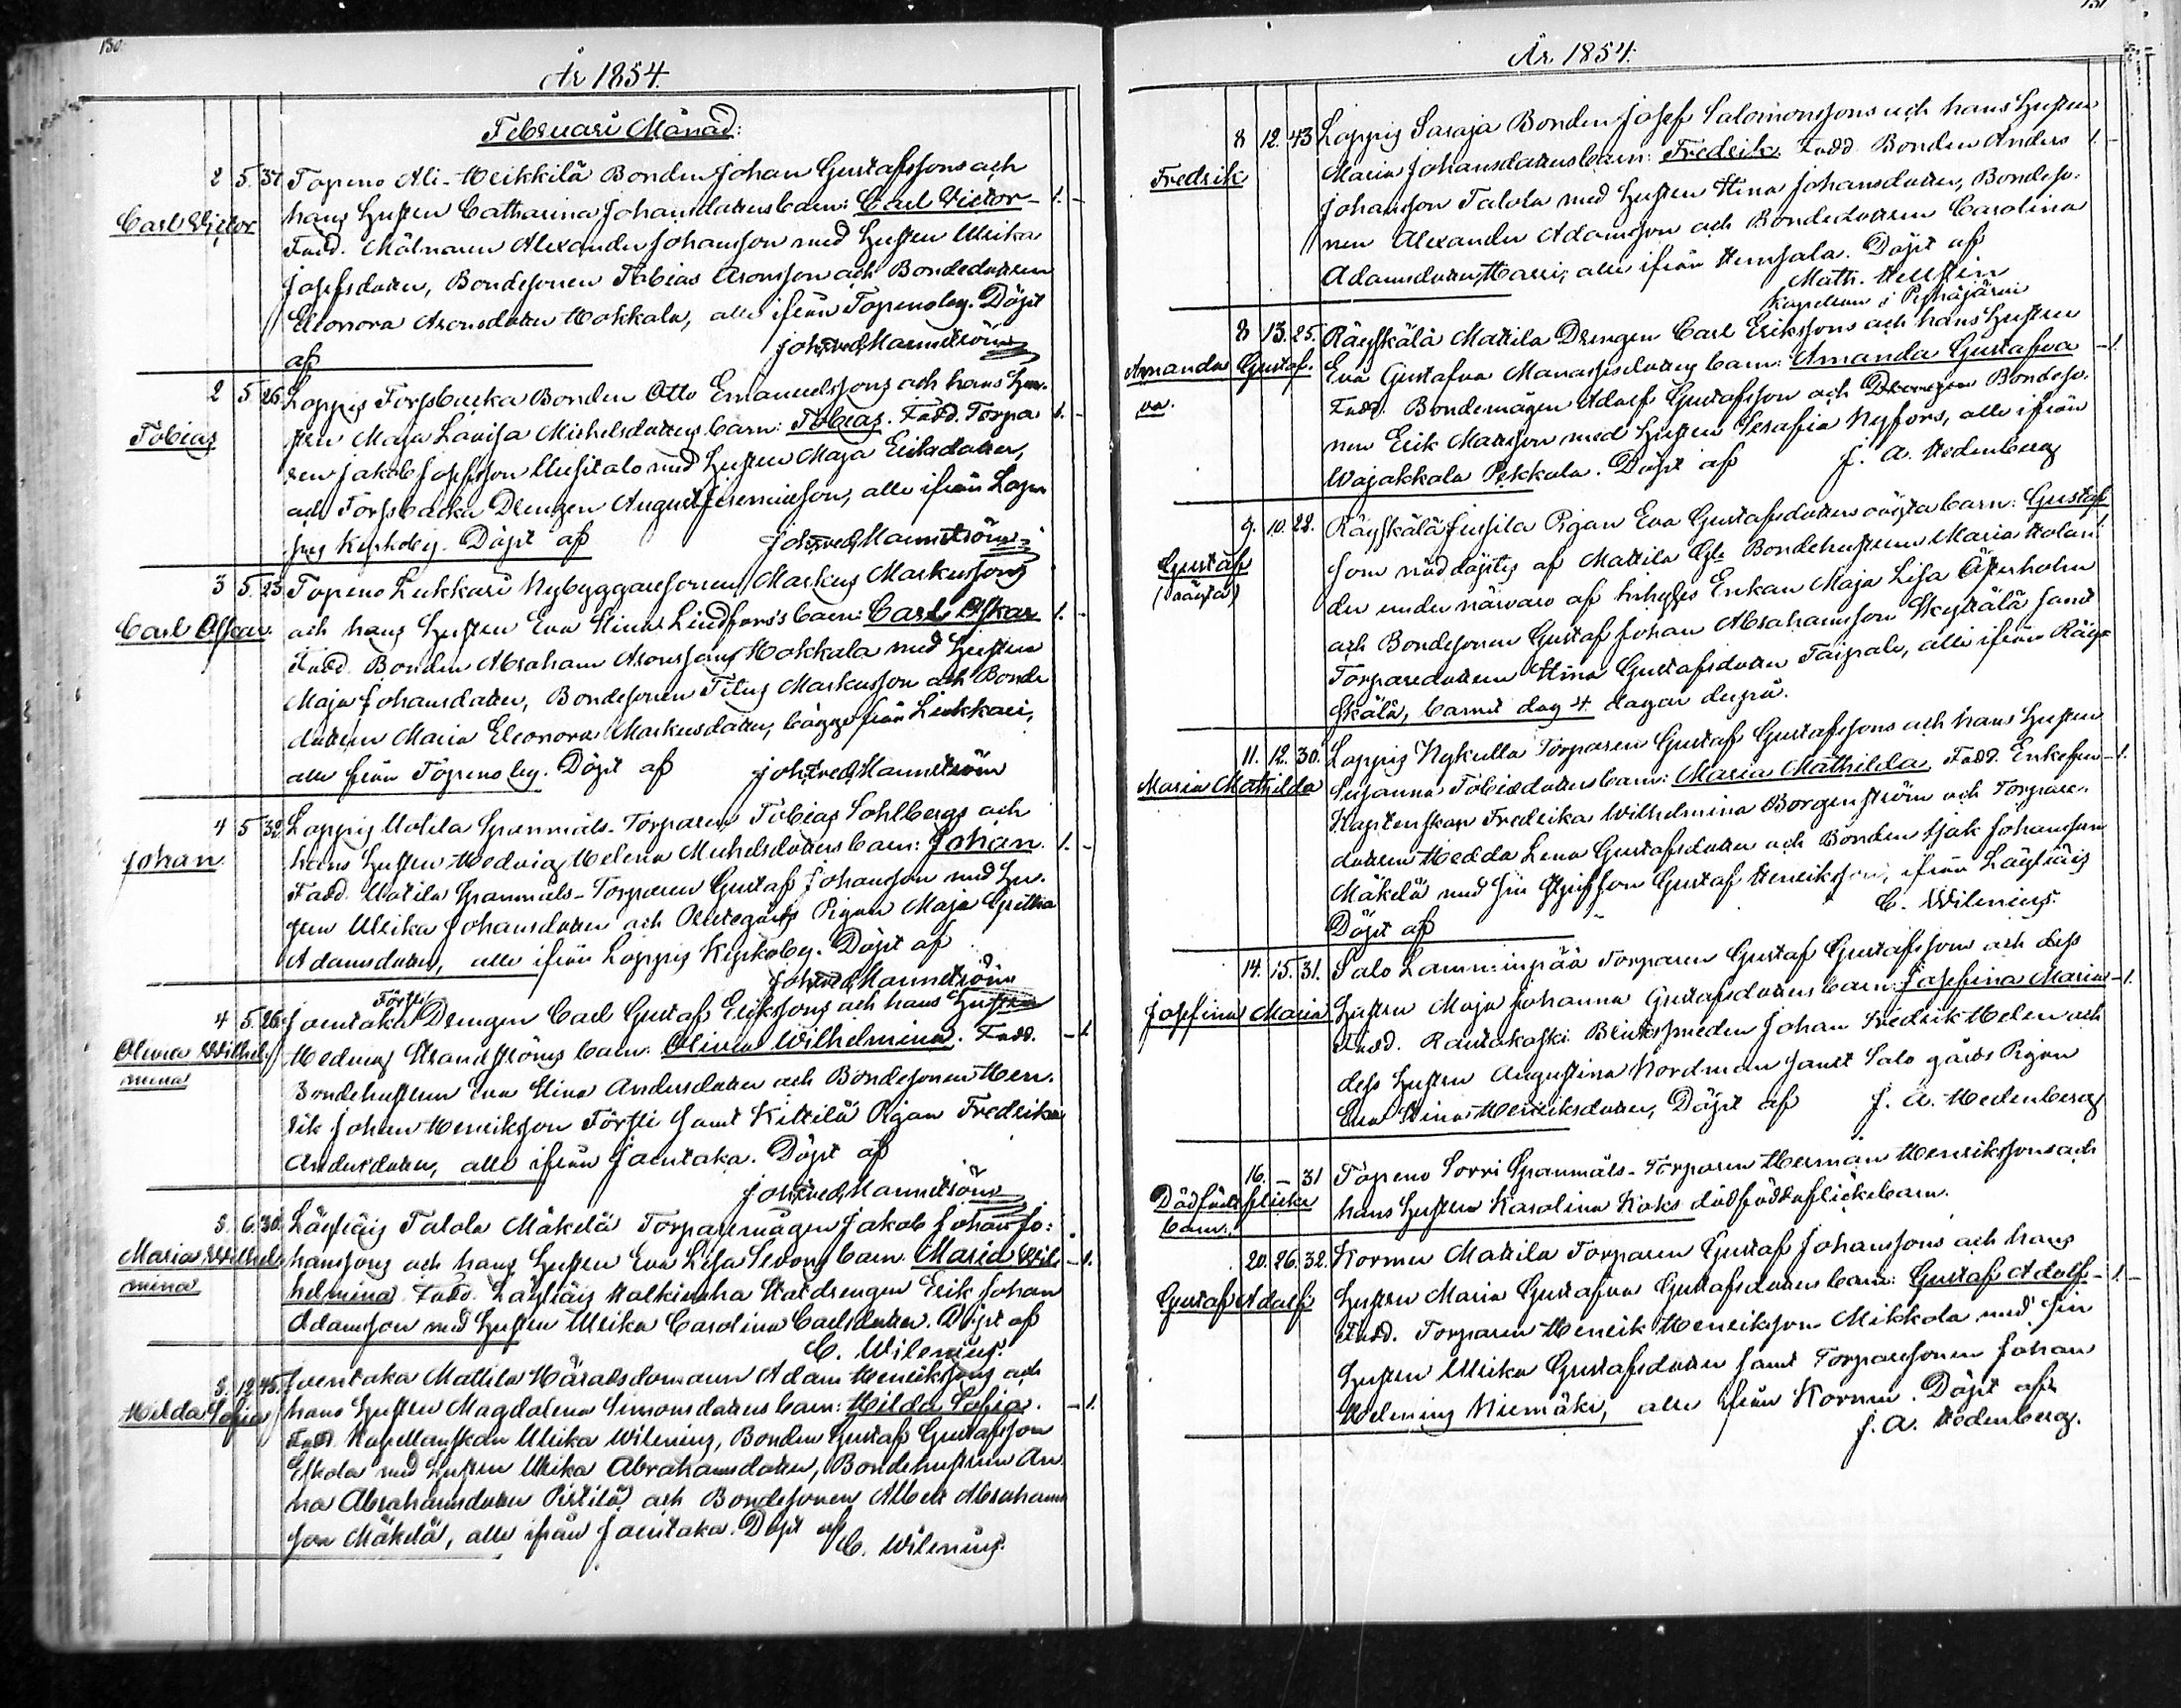 130
År 1854.
Februari Månad:
2 5. 37. Topeno Ali-Heikkilä Bonden Johan Gustafssons och
Carl Victor hans Hustru Catharina Johansdotters barn: Carl Victor 1. -
Fadd. Mölnaren Alexander Johansson med Hustru Ulrika
Josefsdotter, Bondesonen Tobias Aronsson och Bondedottren
Eleonora Aronsdotter Hokkala, alle ifrån Topeno by. Döpt
af Joh. Fred. Mannström
2 5 26. Loppis Torpbacka Bonden Otto Emanuelssons och hans Hu-
Tobias stru Maja Lovisa Michelsdotters barn: Tobias. Fadd. Torpa 1. -
ren Jakob Josefsson Uusitalo med Hustru Maja Eriksdotter,
och Torpbacka Drengen August Jeremiasson, alle ifrån Lop
pis Kyrkoby. Döpt af Joh. Fred. Mannström
3 5. 23 Topeno Lukkari Nybyggaresonen Markus Markussons
Carl Oskar. och hans Hustru Eva Stina Lindfors's barn: Carl Oskar 1. -
Fadd. Bonden Abraham Aronsson Hokkala med Hustru
Maja Johansdotter, Bondesonen Titus Markusson och Bonde
dottren Maria Eleonora Markusdotter, bägge från Lukkari,
alle från Topeno by. Döpt af Joh. Fred. Mannström
4 5 32 Loppis Uotila Spanmåls-Torparen Tobias Sohlbergs och
Johan. hans Hustru Hedvig Helena Michelsdotters barn: Johan. 1. -
Fadd. Uotila Spanmåls-Torparen Gustaf Johansson med Hu-
stru Ulrika Johansdotter och Pigan Maja Gretha
Adamsdotter, alle ifrån Loppis Kyrkoby. Döpt af
Joh. Fred. Mannström
Försti
4 5. 26. Joentaka Drengen Carl Gustaf Erikssons och hans Hustru
Olivia Wilhel Hedvig Strandströms barn: Olivia Wilhelmina. Fadd. - 1
mina Bondehustrun Eva Stina Andersdotter och Bondesonen Hen-
rik Johan Henriksson Försti samt Kittilä Pigan Fredrika
Andersdotter, alle ifrån Joentaka. Döpt af
Joh. Fred. Mannström
5. 6. 30. Läyliäis Talola Mäkelä Torparemågen Jakob Johan Jo-
Maria Wilhel hanssons och hans Hustru Eva Lisa Sevons barn: Maria Wil - 1.
mina helmina Fadd. Läyliäis Erik Johan
Adamsson med Hustru Ulrika Carolina Carlsdotter. Döpt af
C. Wilenius.
8. 12 45. Joentaka Mattila Häradsdomaren Adam Henrikssons och
Hilda Sofia hans Hustru Magdalena Simonsdotters barn: Hilda Sofia. - 1.
Fadd. Kapellanskan Ulrika Wilenius, Bonden Gustaf Gustafsson
Eskola med Hustru Ulrika Abrahamsdotter, Bondehustrun An
na Abrahamsdotter Pirtilä och Bondesonen Albert Abrahams
son Mäkelä, alle ifrån Joentaka. Döpt af C. Wilenius.
131
År. 1854.
8 12. 43 Loppis Saraja Bonden Josef Salomonssons och hans Hustru
Fredrik Maria Johansdotters barn: Fredrik Fadd. Bonden Anders 1. -
Johansson Talola med Hustru Stina Johansdotter, Bondeso-
nen Alexander Adamsson och Bondedottren Carolina
Adamsdotter Harri, alle ifrån Hunsala. Döpt af
Math. Hellstén
Kapellan i Pyhäjärvi
8 13. 25. Räyskälä Mattila Drengen Carl Erikssons och hans Hustru
Amanda Gustaf- Eva Gustafva Manassesdotters barn: Amanda Gustafva - 1.
va. Fadd. Bondemågen Adolf Gustafsson och Bondeso-
nen Erik Mattsson med Hustru Serafia Nyfors, alle ifrån
Wojakkala Pekkala. Döpt af J. A. Hedenberg
9. 10. 22. Räyskälä Jussila Pigan Eva Gustafsdotters oägta barn: Gustaf
Gustaf som nöddöptes af Mattila Bondehustrun Maria
(Oägta) der under närvaro af Enkan Maja Lisa Österholm
och Bondesonen Gustaf Johan Abrahamsson Skyttälä samt
Torparedottren Stina Gustafsdotter Taipale, alle ifrån Räy-
skälä, barnet dog 4. dagar derpå.
11. 12. 30. Loppis Nykulla Torparen Gustaf Gustafssons och hans Hustru
Maria Mathilda Susanna Tobiedotters barn: Maria Mathilda Fadd. Enkefru - 1.
Kaptenskan Fredrika Wilhelmina Borgenström och Torpare-
dottren Hedda Lena Gustafsdotter och Bonden Isak Johansson
Mäkelä med sin Styfson Gustaf Henriksson, ifrån Läyliäis
Döpt af C. Wilenius.
14. 15. 31. Salo Lamminpää Torparen Gustaf Gustafssons och dess
Josefina Maria Hustru Maja Johanna Gustafsdotters barn: Josefina Maria - 1.
Fadd. Rautakoski Bleckssmeden Johan Fredrik Helen och
dess Hustru Augustina Nordman samt Salo gårds Pigan
Eva Stina Henriksdotter, Döpt af J. A. Hedenberg
16. - 31 Topeno Sorri Spanmåls-Torparen Herman Henrikssons och
Dödfödt flicke hans Hustru Karolina Koks dödfödda flickebarn.
barn.
20. 26. 32. Kormu Mattila Torparen Gustaf Johanssons och hans
Gustaf Adolf Hustru Maria Gustafva Gustafsdotters barn: Gustaf Adolf - 1. -
Fadd. Torparen Henrik Henriksson Mikkola med sin
Hustru Ulrika Gustafsdotter samt Torparesonen Johan
Helening Niemäki, alle ifrån Kormu. Döpt af
J. A. Hedenberg.